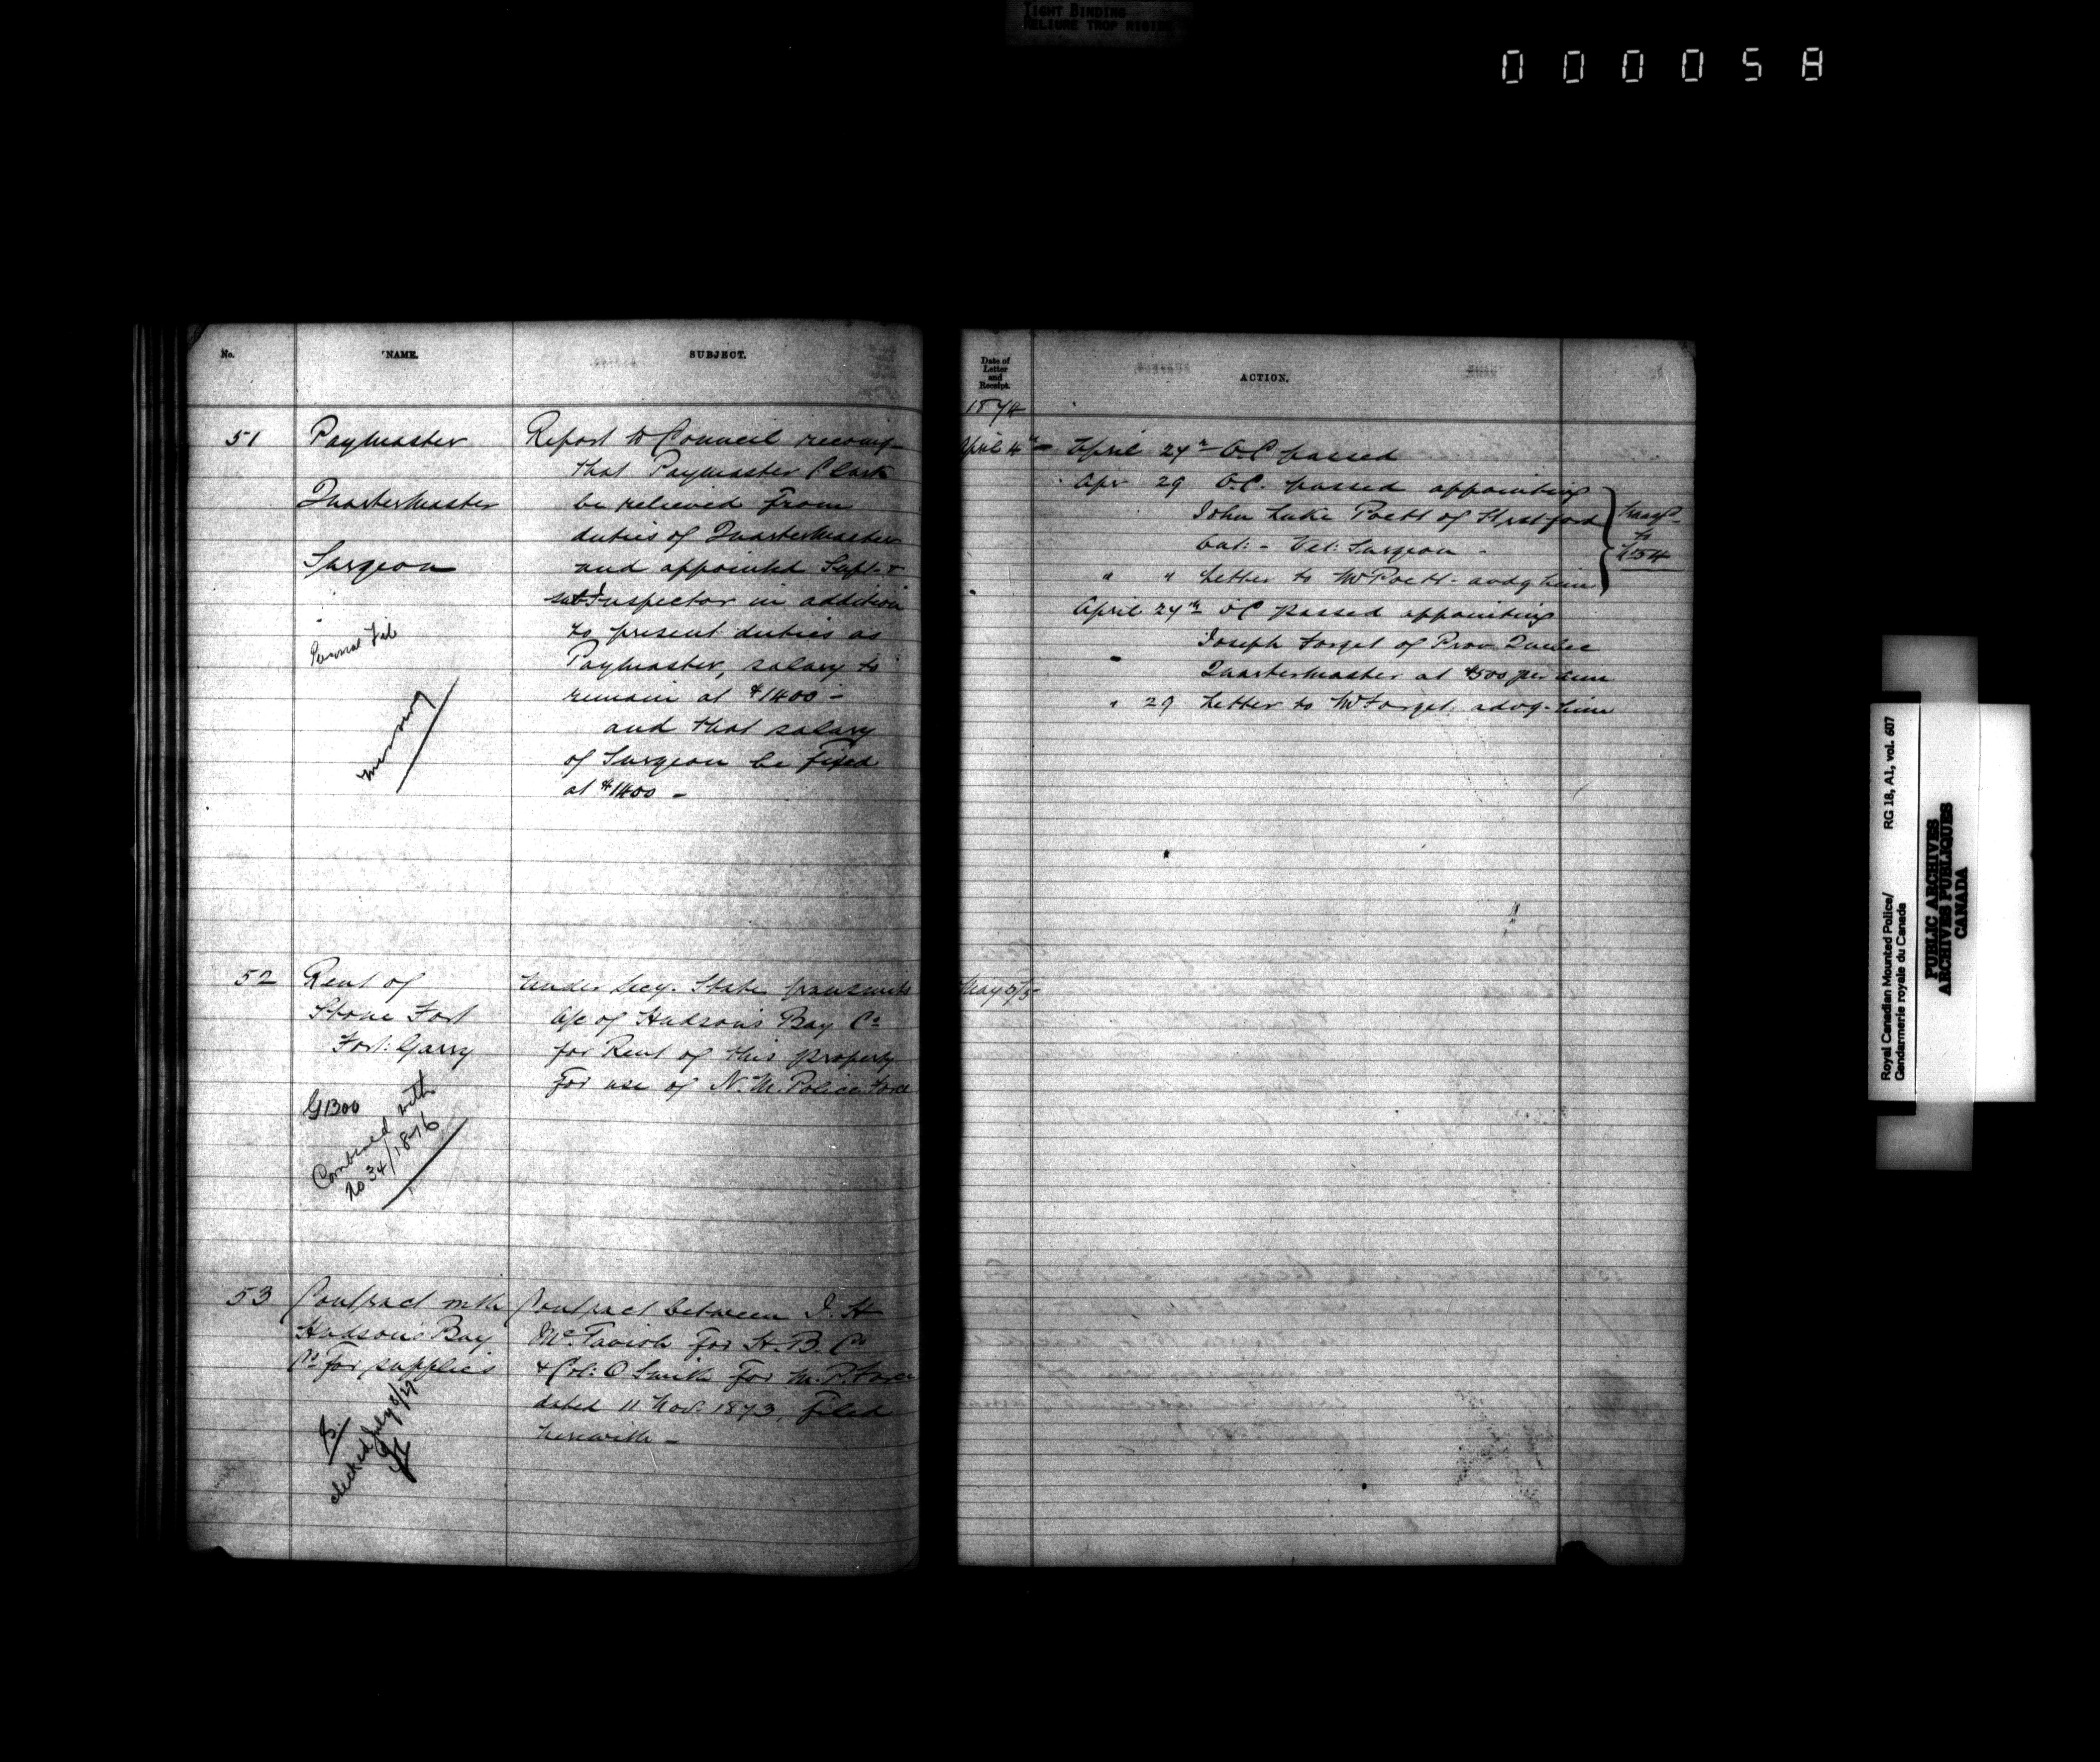 TIGHT BINDING
RELIURE TROP RIGIDE
000058
No.
NAME.
SUBJECT.
51
Paymaster
QuarterMaster
Surgeon
Personal File
missing
Report to Council recomg
that Paymaster Clark
be relieved from
duties of QuarterMaster
and appointed Supt. &
sub Inspector in addition
to present duties as
Paymaster, salary to
remain at $1400 -
and that salary
of Surgeon be fixed
at $1400 -
52
Rent of
Stone Fort
Fort: Garry
G1300
Combined with
no 34/1876
Under Secy. State transmits
a/c of Hudson's Bay Co
for Rent of this property
for use of N. M. Police Force
53
Contract with
Hudson's Bay
Co for supplies
checked July
Contract between J. H
McTavish for H. B. Co
& Col: O Smith for M. P. Force
dated 11 Nov. 1873, filed
herewith -
Date of
Letter
and
Receipt.
ACTION.
1874
April 4th
April 24th O.C. passed
Apr 29 O.C. passed appointing
John Luke Poett of Stratford
Ont: - Vet: Surgeon -
" " Letter to Mr Poett - advg him
Transfd
to
No 54
April 24th OC passed appointing
Joseph Forget of Prov. Quebec
QuarterMaster at $500 per ann
" 29 Letter to Mr Forget advg - him
May 5/5
Royal Canadian Mounted Police/ RG 18, A1, vol. 607
Gendarmerie royale du Canada
PUBLIC ARCHIVES
ARCHIVES PUBLIQUES
CANADA